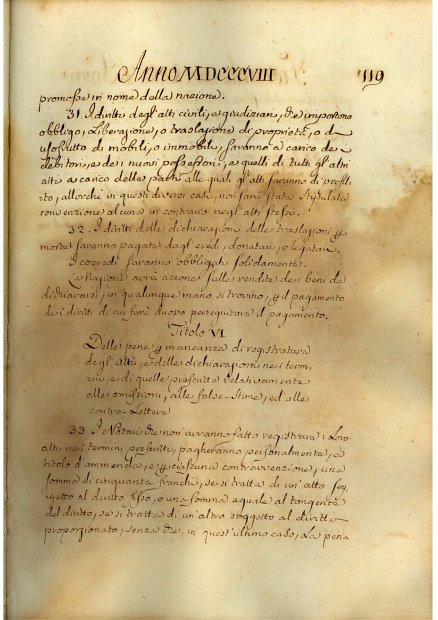 Anno MDCCCVIII 119
promosse in nome della nazione.
31. I diritti degl'atti civili, e giudiziari, che importano
obbligo, o liberazione, o traslazione di proprietà, o d
usofrutto di mobili, o immobili, saranno a carico de
debitori, e de i nuovi possessori, e quelli di tutti gl'altri
atti a carico delle parti alle quali gl'atti saranno di profit-
to, allorchè in questi diversi casi, non sarà stata stipulata
convenzione alcuna in contrario negl'atti stessi.
32. I diritti delle dichiarazioni delle traslazioni p
morte saranno pagati dagl'eredi, donatari, o legatari.
I coeredi saranno obbligati solidamente.
La Nazione avrà azione sulle rendite dei beni da
dichiararsi, in qualunque mano si trovino, p il pagamento
dei diritti di cui farà duopo perseguitare il pagamento.
Titolo VI.
Delle pene p mancanza di registratura
degl'Atti, e delle dichiarazioni nei term-
ini, e di quelle prescritte relativamente
alle omissioni, alle false-stime, ed alle
contro-Lettere
33. I Notari che non avranno fatto registrare i loro
atti nei termini prescritti, pagheranno personalmente, a
titolo d'ammenda, e p ciascuna contravvenzione, una
somma di cinquanta franchi, se si tratta di un'atto sog-
getto al diritto fisso, o una somma eguale al tangente
del diritto, se si tratta di un'altro soggetto al diritto
proporzionato, senza che, in quest'ultimo caso, la pena